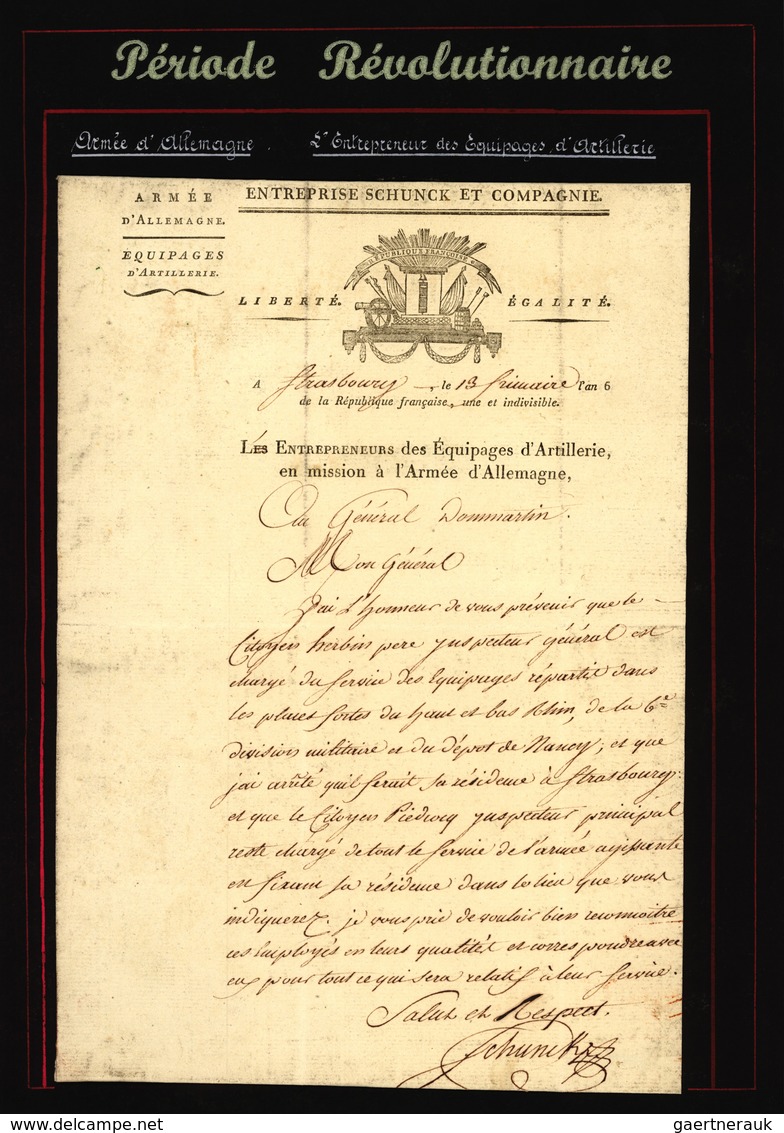 Période Révolutionnaire
Armée d'Allemagne. L'Entrepreneur des Equipages d'Artillerie
ARMÉE
D'ALLEMAGNE.
ÉQUIPAGES
D'ARTILLERIE.
ENTREPRISE SCHUNCK ET COMPAGNIE.
RÉPUBLIQUE FRANÇOISE
LIBERTÉ. ÉGALITÉ.
A Strasbourg, le 13 frimaire l'an 6
de la République française, une et indivisible.
LES ENTREPRENEURS des Équipages d'Artillerie,
en mission à l'Armée d'Allemagne,
Au Général Dommartin.
Mon Général
J'ai L'honneur de vous prévenir que le
Citoyen herbin pere ynspecteur général est
chargé du service des Equipages répartis dans
les places fortes du haut et bas Rhin, de la 6e
division militaire et du dépot de Nancy, et que
j'ai arrêté qu'il ferait sa résidence à Strasbourg:
et que le Citoyen Piedrocq ynspecteur principal
reste chargé de tout le service de l'armée agissante
en fixant sa résidence dans le lieu que vous
indiquerez. je vous prie de vouloir bien reconnoitre
ces Employés en leurs qualités et correspondre avec
eux pour tout ce qui sera relatif à leur service.
Salut et Respect.
Schunck
gaertnerauk